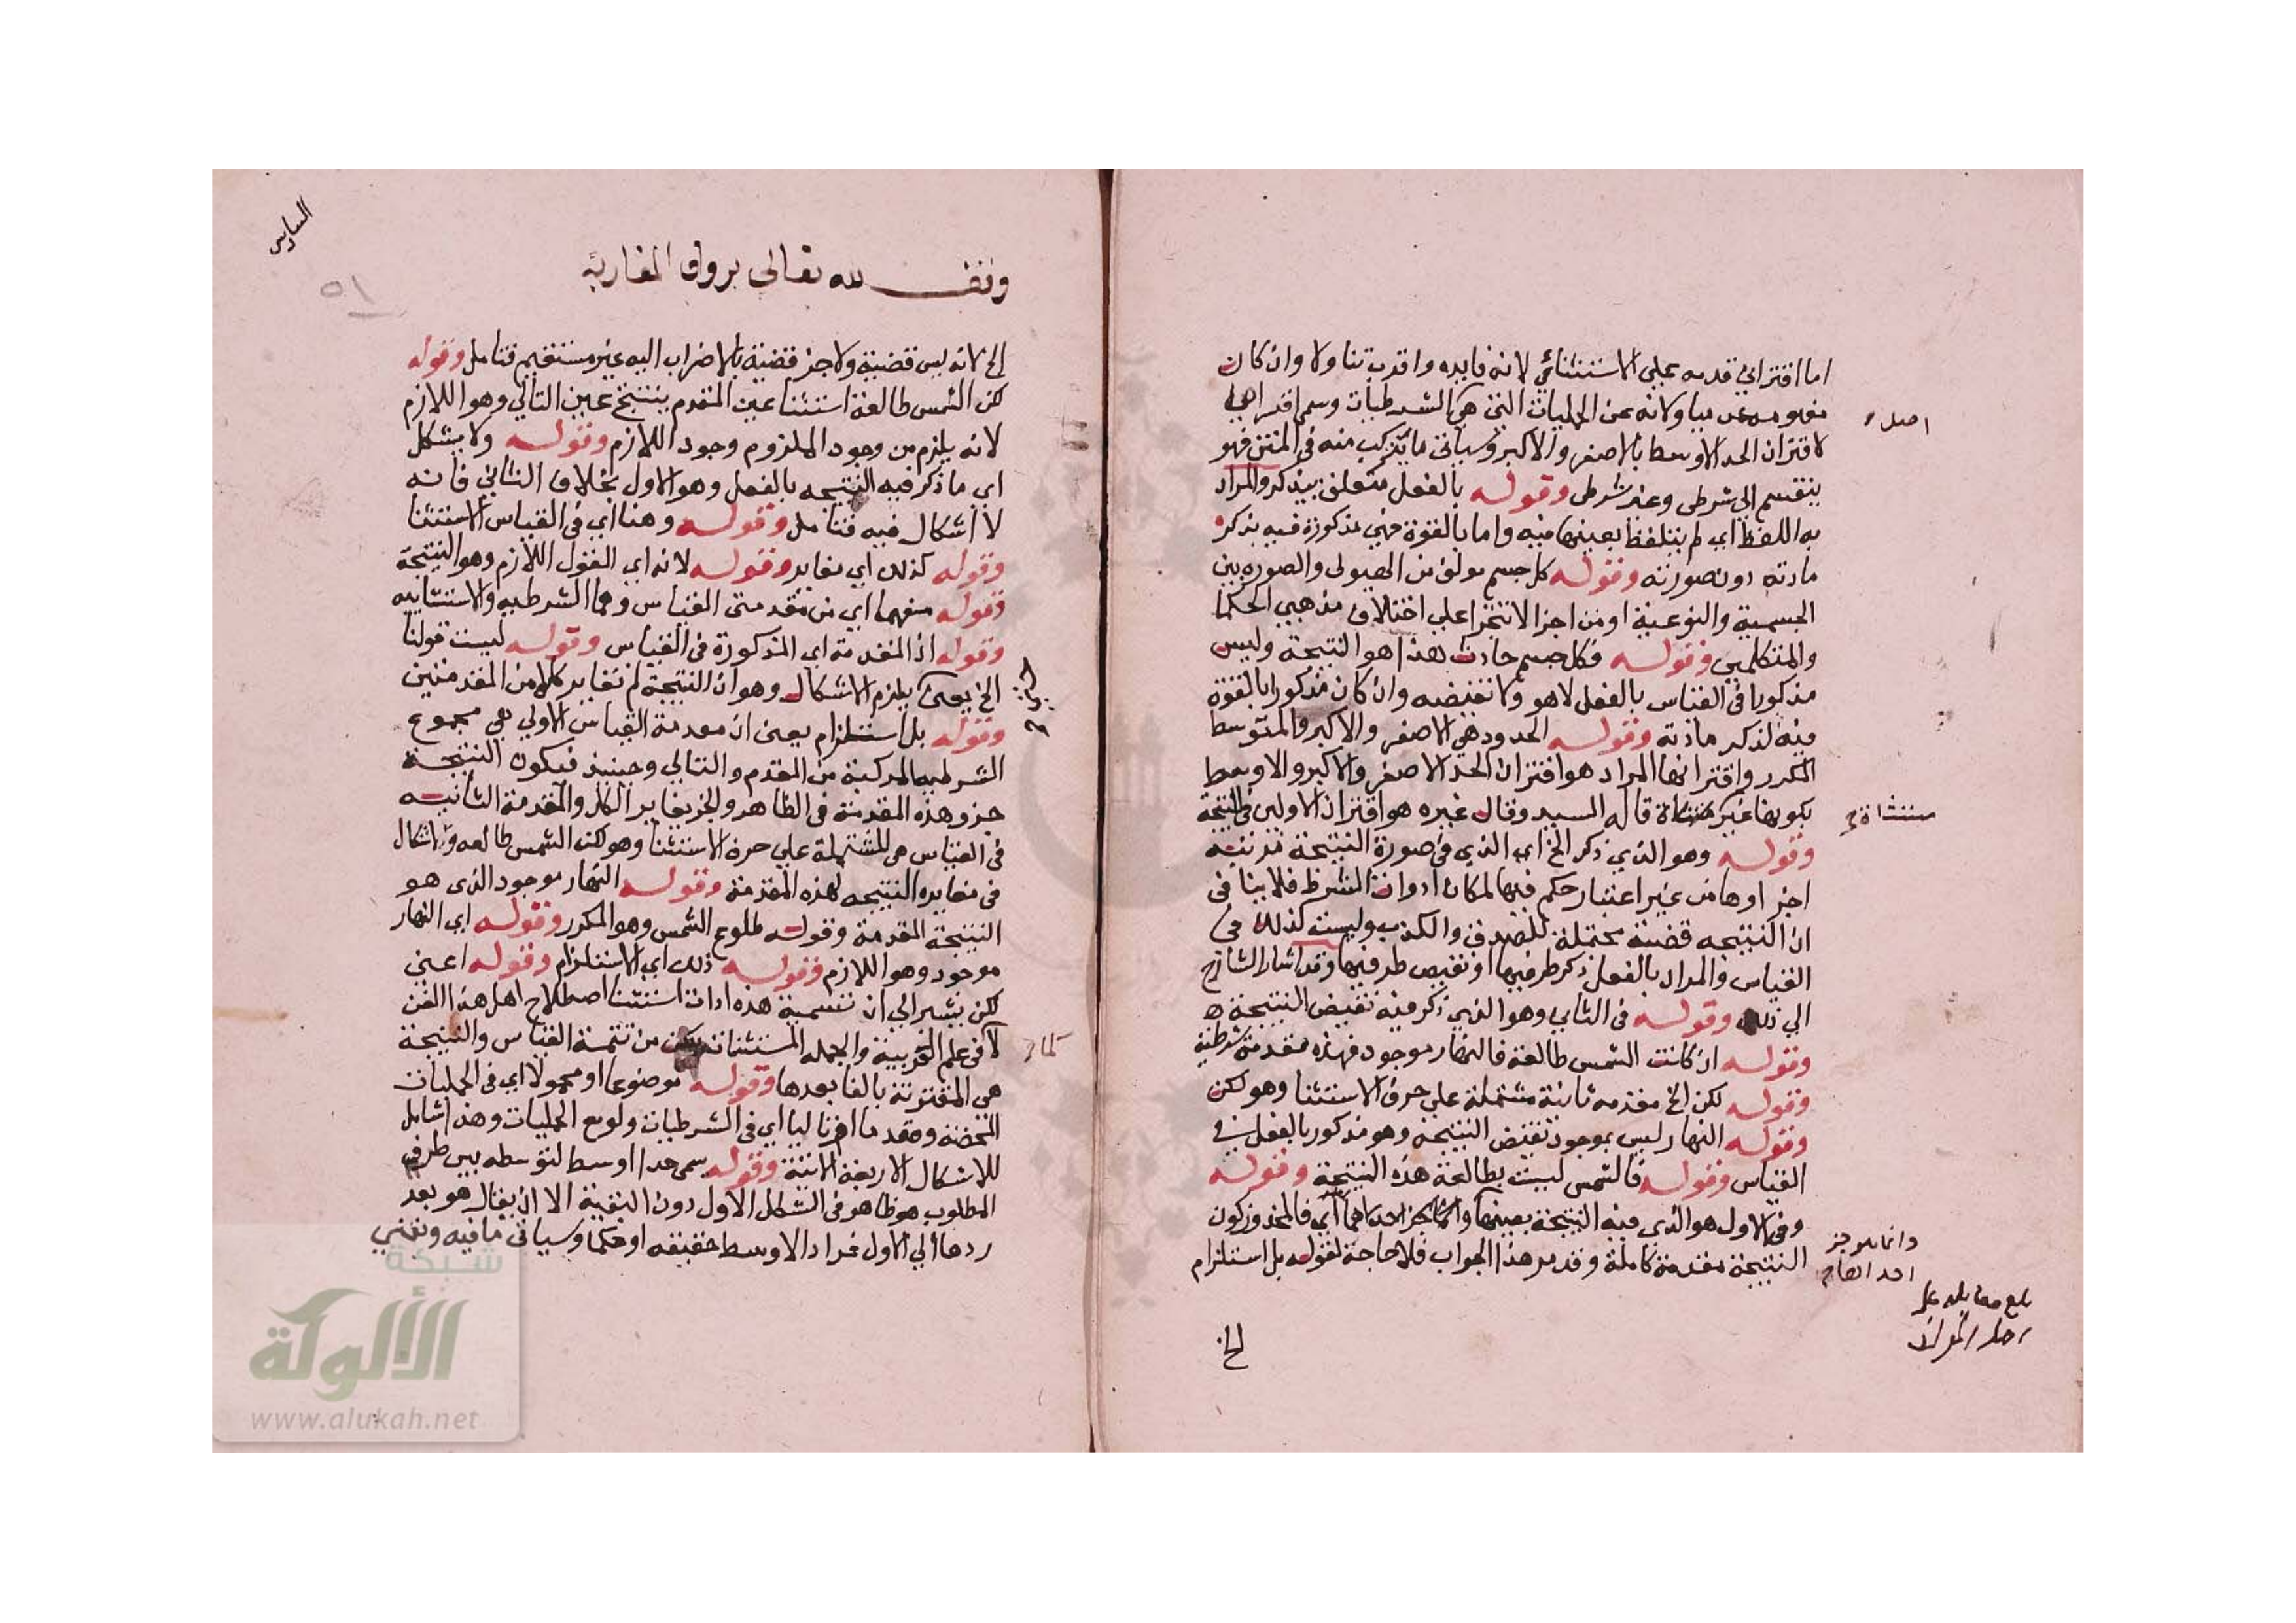 اما اقتراني قدمه على الاستثنائي لانه فايده واقرب تناولا وان كان
ولانه من الحمليات التي هي الشرطيات وسمي اقترانيا
لاقتران الحد الاوسط بالاصغر والاكبر وسياتي ما يتركب منه في المتن فهو
ينقسم الى شرطي وغير شرطي وقوله بالفعل متعلق بيذكر والمراد
به اللفظ اي لم يتلفظ بعينها فيه واما بالقوة فهي مذكورة فيه بذكر
مادته دون صورته وقوله كل جسم مولف من الهيولى والصورة بين
الجسمية والنوعية او من اجزا لا تتجزا على اختلاف مذهبي الحكما
والمتكلمين وقوله فكل جسم حادث هذا هو النتيجة وليس
مذكورا في القياس بالفعل لا هو ولا نقيضه وان كان مذكورا بالقوة
فيه لذكر مادته وقوله الحدود هي الاصغر والاكبر والمتوسط
المكرر واقترانها المراد هو اقتران الحد الاصغر والاكبر والاوسط
بكونها غير قاله السيد وقال غيره هو اقتران الاولين في النتيجة
وقوله وهو الذي ذكر الخ اي الذي في صورة النتيجة
اجزاوها من غير اعتبار حكم فيها لمكان ادوات الشرط فلا ينافي
ان النتيجه قضية محتملة للصدق والكذب وليست كذلك في
القياس والمراد بالفعل ذكر طرفيها او نقيض طرفيها وقد اشار الشارح
الى ذلك وقوله في الثاني وهو الذي ذكر فيه نقيض النتيجة
وقوله ان كانت الشمس طالعة فالنهار موجود فهذه مقدمة شرطية
وقوله لكن الخ مقدمه ثانية مشتملة على حرف الاستثنا وهو لكن
وقوله النهار ليس بموجود نقيض النتيجة وهو مذكور بالفعل في
القياس وقوله فالشمس ليست بطالعة هذه النتيجة وقوله
وفي الاول هو الذي فيه النتيجة بعينها اي فالمحذور كون
النتيجة مقدمة كاملة وقد مر هذا الجواب فلا حاجة لقوله بل استلزام
الخ
اصل
منتشاة
دائما هو جز
بلغ مقابلة على
اصل المولف
السادس
٥١
وقف لله تعالى برواق المغاربة
الخ لانه ليس قضية ولا جز قضية بالاضراب اليه غير مستقيم فتامل وقوله
لكن الشمس طالعة استثنا عين المقدم ينتج عين التالي وهو اللازم
لانه يلزم من وجود الملزوم وجود اللازم وقوله ولا يشكل
اي ما ذكر فيه النتيجه بالفعل وهو الاول بخلاف الثاني فانه
لا اشكال فيه فتامل وقوله وهنا اي في القياس الاستثنا
وقوله كذلك اي مغاير وقوله لانه اي القول اللازم وهو النتيجة
وقوله منهما اي من مقدمتي القياس وهما الشرطيه والاستثنائيه
وقوله ان المقدمة اي المذكورة في القياس وقوله ليست قولنا
الخ يعني يلزم الاشكال وهو ان النتيجة لم تغاير كلا من المقدمتين
وقوله بل استلزام يعني ان مقدمة القياس الاولي هي مجموع
الشرطيه المركبة من المقدم والتالي وحينيذ فيكون النتيجة
جزو هذه المقدمة في الظاهر والجز يغاير الكل والمقدمة الثانية
في القياس هي المشتملة على حرف الاستثنا وهو لكن الشمس طالعه ولا اشكال
في مغايرة النتيجه لهذه المقدمة وقوله النهار موجود الذي هو
النتيجة المقدمة وقوله طلوع الشمس وهو المكرر وقوله اي النهار
موجود وهو اللازم فقوله ذلك اي الاستلزام وقوله اعني
لكن يشير الى ان تسمية هذه ادات استثنا اصطلاح اهل هذا الفن
لا في علم العربية والجمله المستثناة من تتمة القياس والنتيجة
هي المقترنة بالفا بعدها وقوله موضوعا او محمولا اي في الحمليات
المحضة ومقدما او تاليا اي في الشرطيات ولو مع الحمليات وهذا شامل
للاشكال الاربعة الاتية وقوله يسمى حدا اوسط لتوسطه بين طرفي
المطلوب هو ظاهر في الشكل الاول دون البقية الا ان يقال هو بعد
ردها الى الاول فمراد الاوسط حقيقه او حكما وسياتي ما فيه
شبكة
الألوكة
www.alukah.net